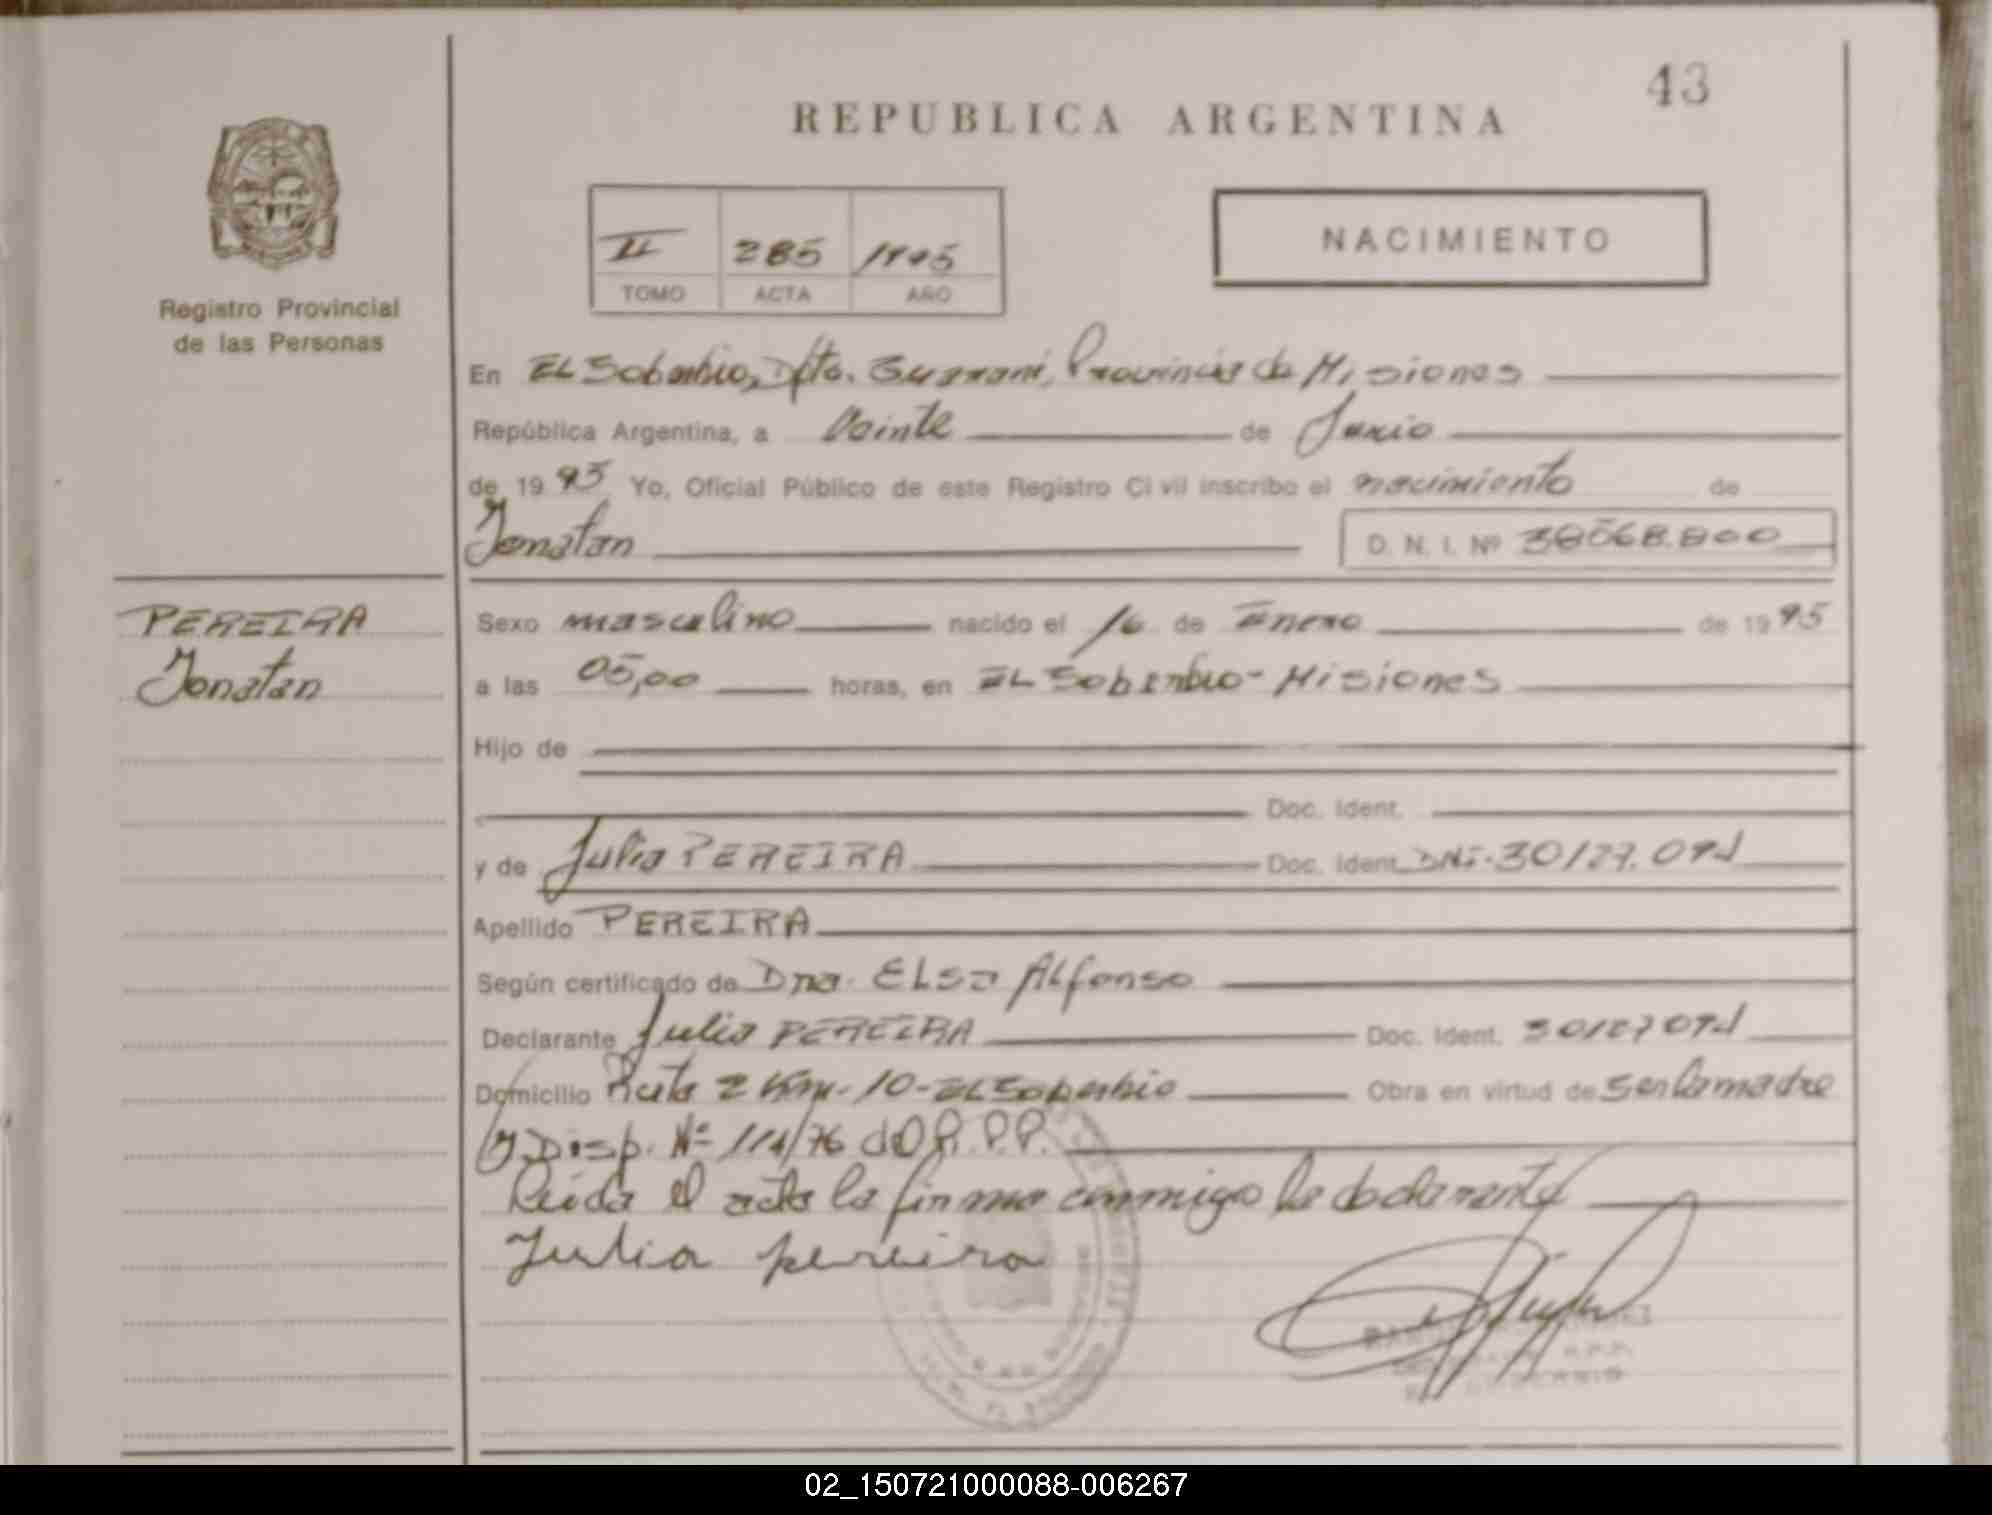 43
REPUBLICA ARGENTINA
II 285 1995
TOMO ACTA AÑO
NACIMIENTO
Registro Provincial
de las Personas
En El Soberbio, Dpto. Guaraní, Provincia de Misiones
República Argentina, a Veinte de Junio
de 1995 Yo, Oficial Público de este Registro Civil inscribo el nacimiento de
Jonatan D. N. I. Nº 38568.800
PEREIRA
Jonatan
Sexo masculino nacido el 16 de Enero de 1995
a las 05,00 horas, en El Soberbio - Misiones
Hijo de
Doc. Ident.
y de Julia PEREIRA Doc. Ident. DNI-30127.091
Apellido PEREIRA
Según certificado de Dra. Elsa Alfonso
Declarante Julia PEREIRA Doc. Ident. 30127091
Domicilio Ruta 2 Km- 10- El Soberbio Obra en virtud de ser la madre
y Disp. Nº 114/76 d R.P.P.
Leída el acta la firma conmigo la declarante
Julia pereira
R.P.P.
02_150721000088-006267